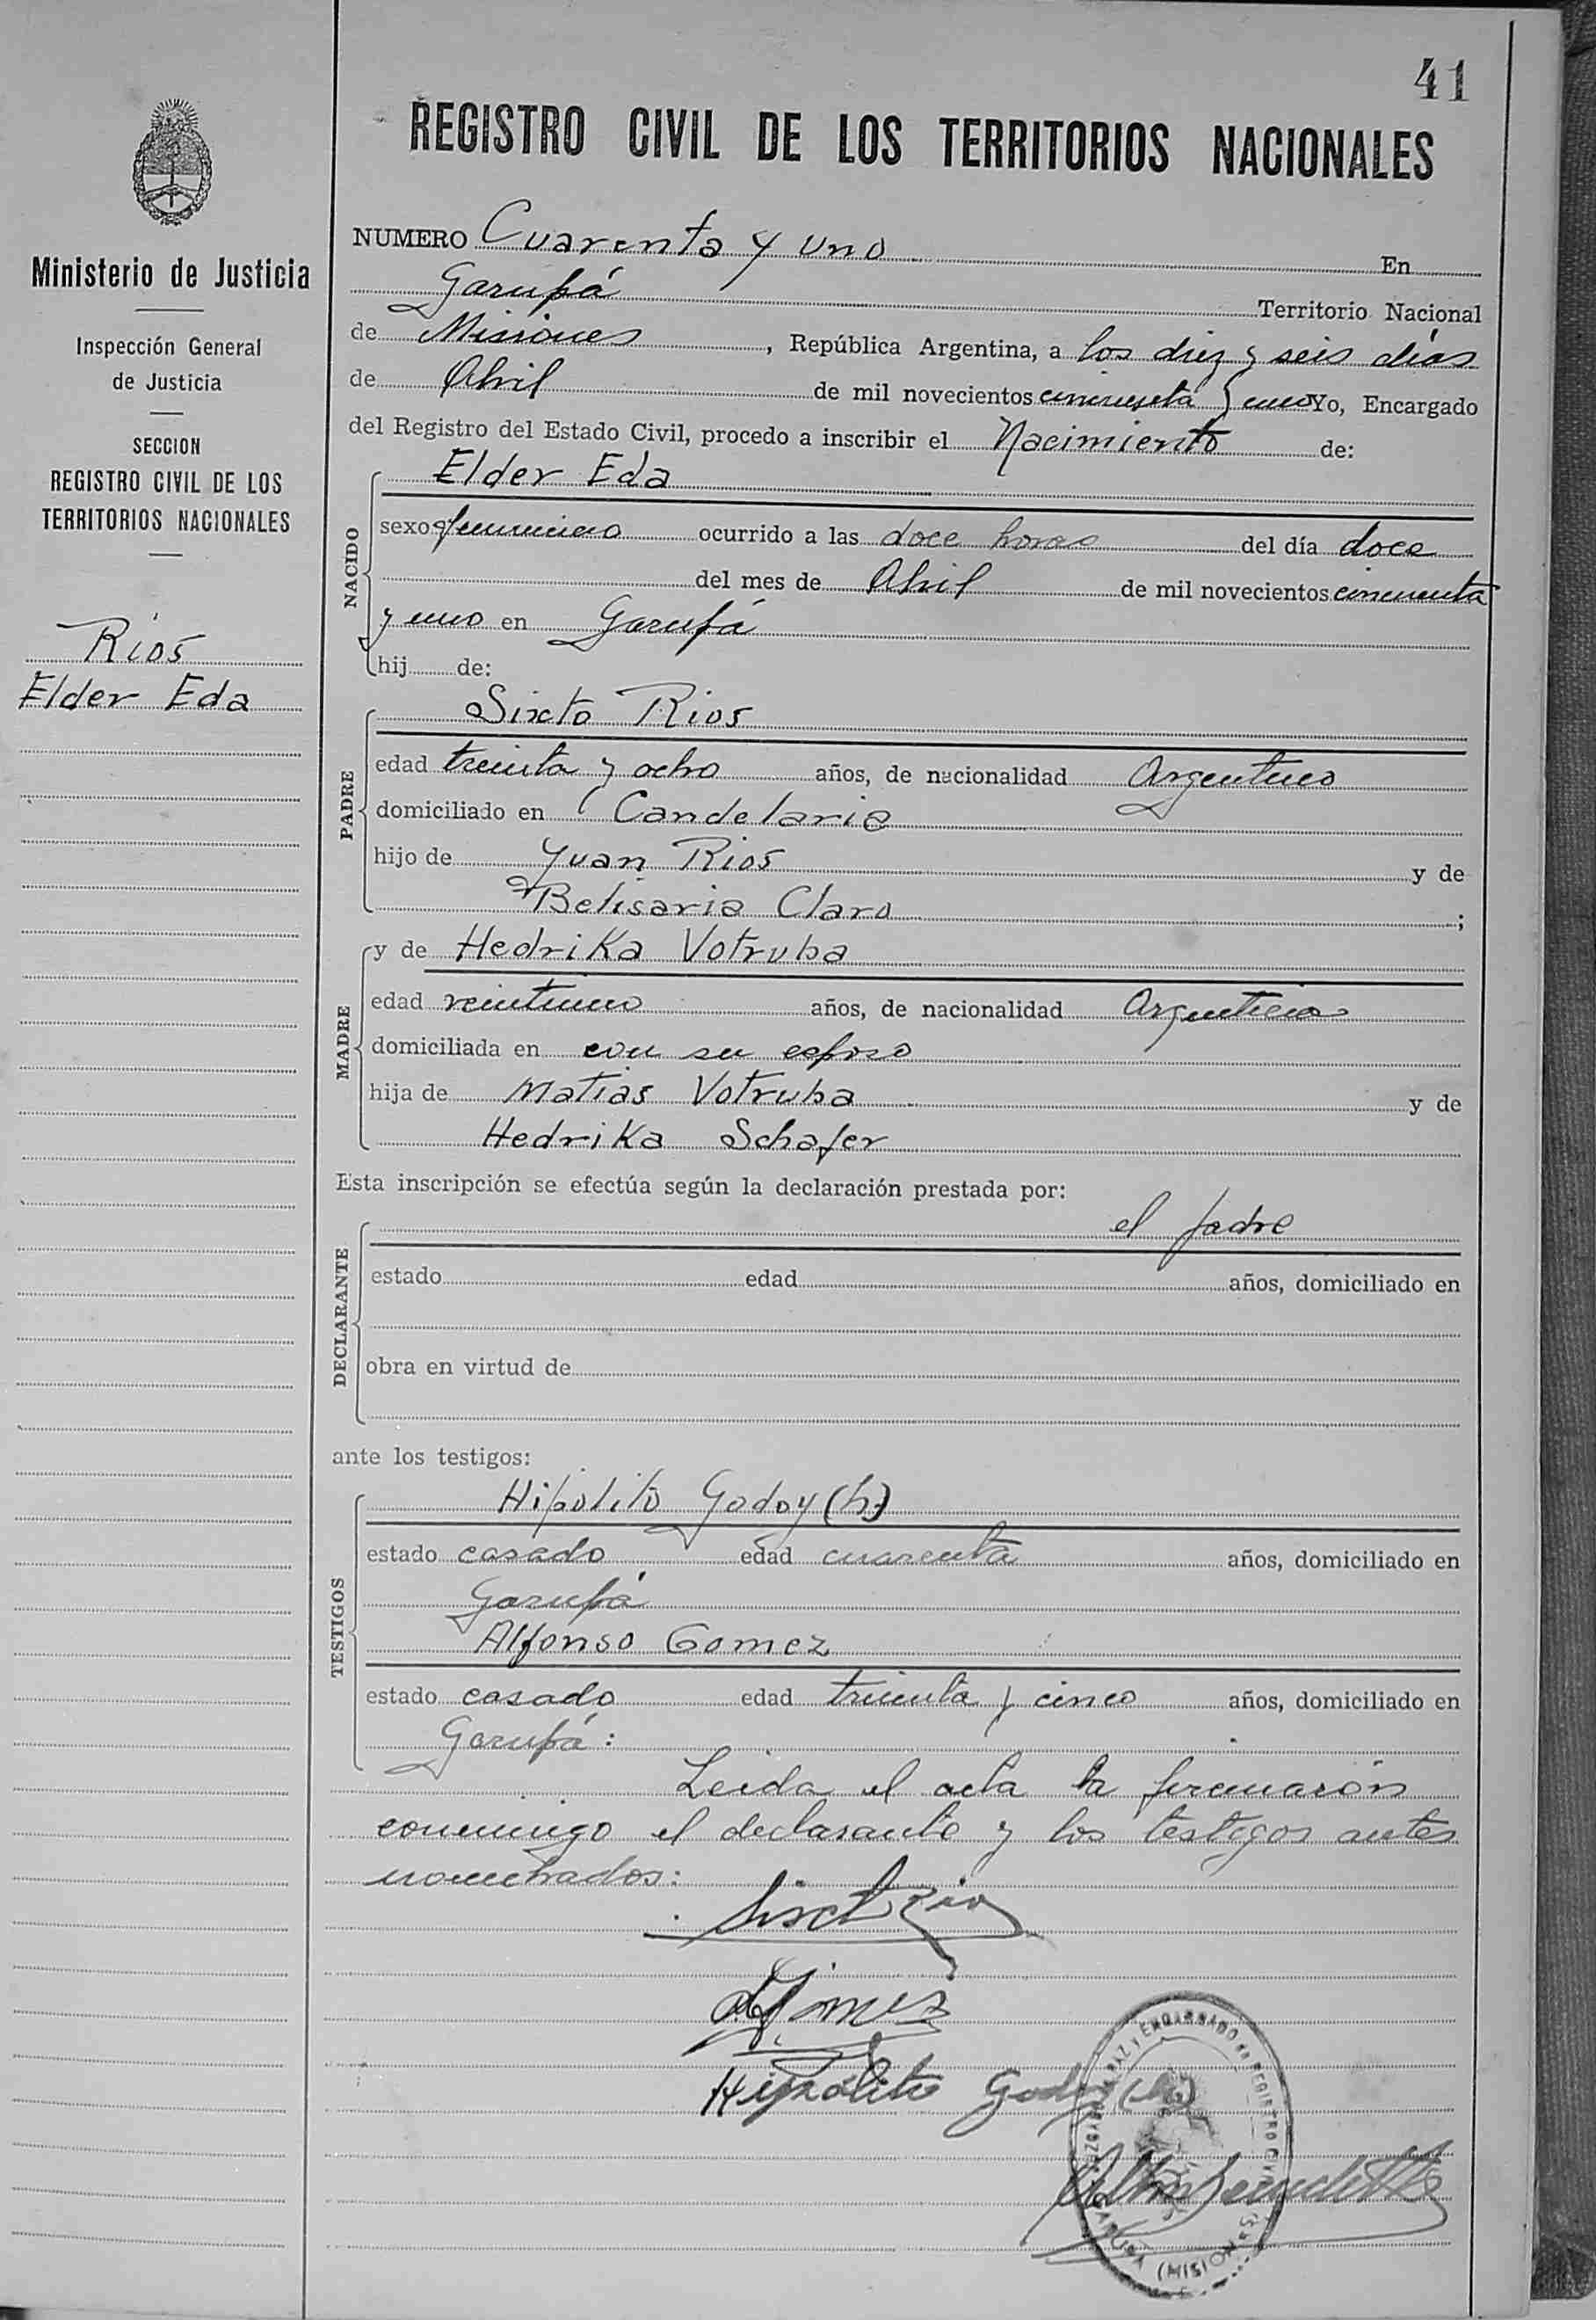 41
REGISTRO CIVIL DE LOS TERRITORIOS NACIONALES
Ministerio de Justicia
Inspección General
de Justicia
SECCION
REGISTRO CIVIL DE LOS
TERRITORIOS NACIONALES
Rios
Elder Eda
NUMERO Cuarenta y uno En
Garupá Territorio Nacional
de Misiones, República Argentina, a los diez y seis días
de Abril de mil novecientos cincuenta y uno Yo, Encargado
del Registro del Estado Civil, procedo a inscribir el Nacimiento de:
NACIDO
Elder Eda
sexo femenino ocurrido a las doce horas del día doce
del mes de Abril de mil novecientos cincuenta
y uno en Garupá
hij de:
PADRE
Sixto Rios
edad treinta y ocho años, de nacionalidad Argentino
domiciliado en Candelaria
hijo de Juan Rios y de
Belisaria Claro ;
MADRE
y de Hedrika Votruba
edad veintiuno años, de nacionalidad Argentina
domiciliada en con su esposo
hija de Matias Votruba y de
Hedrika Schafer
Esta inscripción se efectúa según la declaración prestada por:
DECLARANTE
el padre
estado edad años, domiciliado en
obra en virtud de
ante los testigos:
TESTIGOS
Hipolito Godoy (h)
estado casado edad cuarenta años, domiciliado en
Garupá
Alfonso Gomez
estado casado edad treinta y cinco años, domiciliado en
Garupá:
Leida el acta la firmarón
conmigo el declarante y los testigos antes
nombrados:
Sixto Rios
A Gómez
Hipólito Godoy (h)
JUZGADO DE PAZ Y ENCARGADO DE REGISTRO CIVIL
GARUPA (MISIONES)